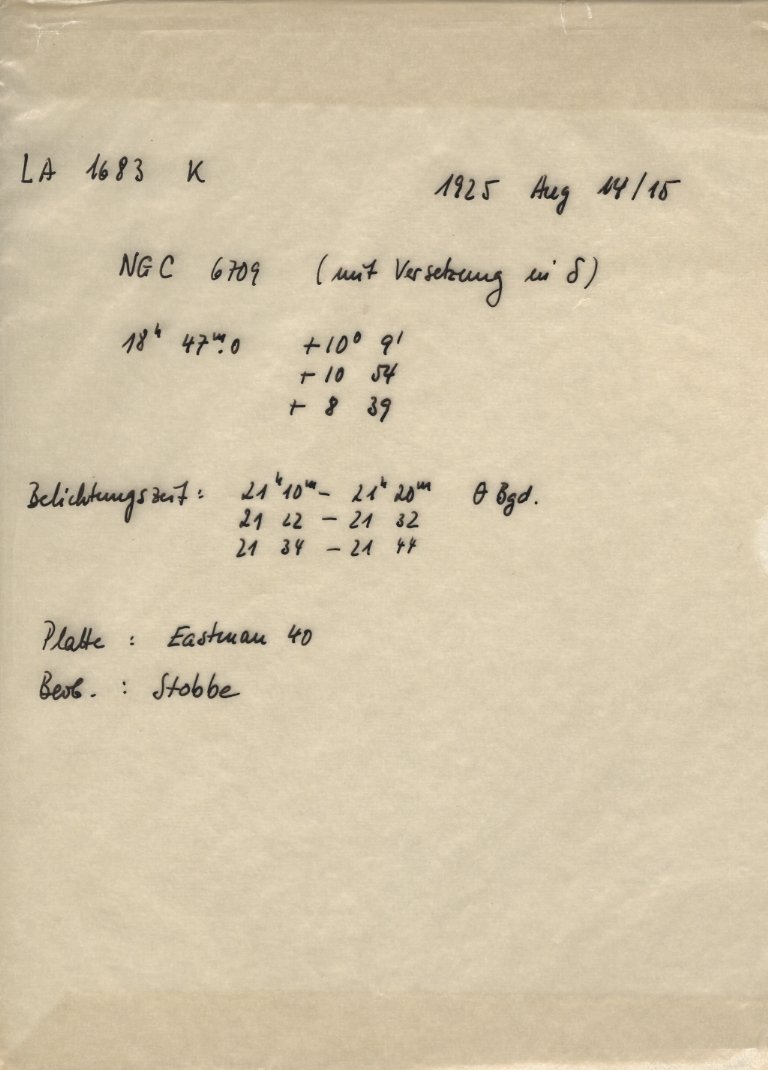 LA 1683 K
1925 Aug 14/15
NGC 6709 (mit Versetzung in δ)
18ʰ 47ᵐ.0 +10° 9'
+ 10 54
+ 8 39
Belichtungszeit: 21ʰ10ᵐ – 21ʰ20ᵐ θ Bgd.
21 22 – 21 32
21 34 – 21 44
Platte : Eastman 40
Beob. : Stobbe